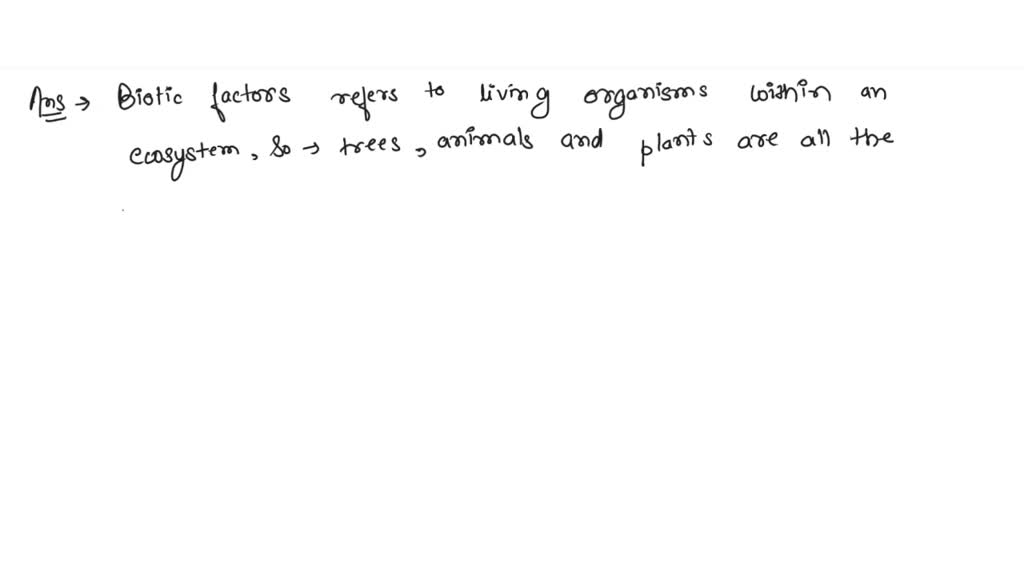 Ans → Biotic factors refers to living organisms within an
ecosystem, So → trees, animals and plants are all the